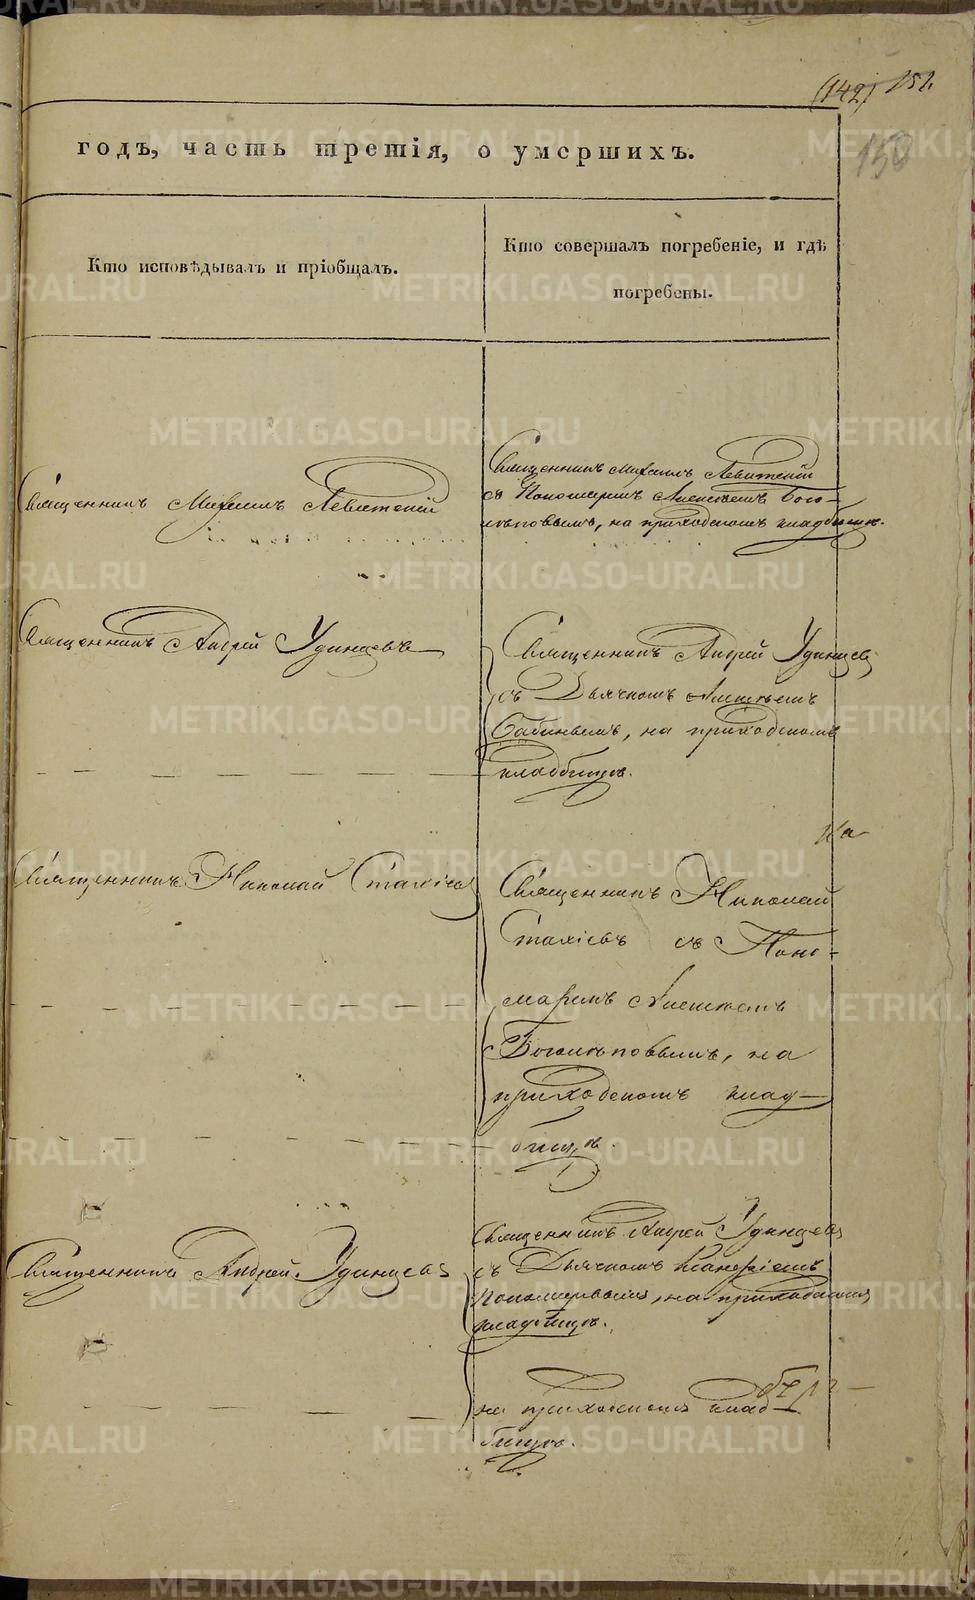 (142) 151.
150
годъ, часть третія, о умершихъ.
Кто исповѣдывалъ и пріобщалъ.
Кто совершалъ погребеніе, и гдѣ
погребены.
Священникъ Михаилъ Левитскій
Священникъ Михаилъ Левитскій
съ Пономаремъ Алексѣемъ Бого-
лѣповымъ, на приходскомъ кладбищѣ.
Священникъ Андрей Удинцевъ
Священникъ Андрей Удинцевъ
съ Дьячкомъ Алексѣемъ
Бабинымъ, на приходскомъ
кладбищѣ.
На
Священникъ Николай Стахіев
Священникъ Николай
Стахіевъ съ Поно-
маремъ Алексѣемъ
Боголѣповымъ, на
приходскомъ клад-
бищѣ.
Священникъ Андрей Удинцевъ
Священникъ Андрей Удинцевъ
съ Дьячкомъ
Пономаревымъ, на приходскомъ
кладбищѣ.
на приходскомъ клад-
бищѣ.
METRIKI.GASO-URAL.RU